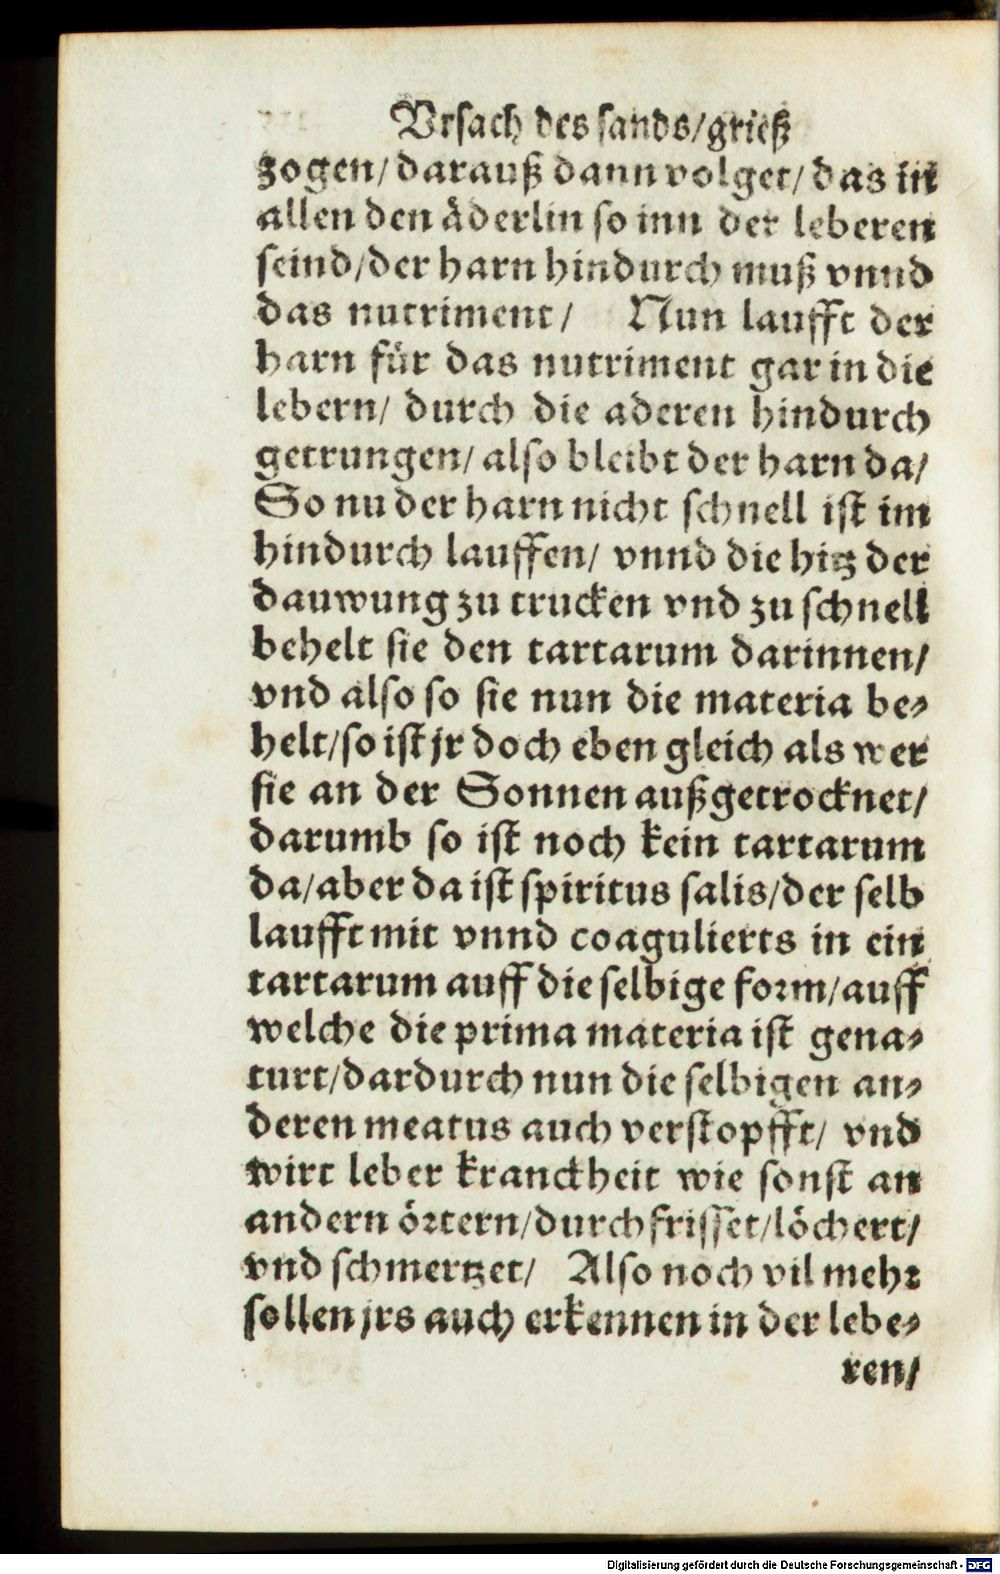 Vrsach des sands/grieß
zogen/darauß dann volget/das in
allen den äderlin so inn der leberen
seind/der harn hindurch muß vnnd
das nutriment/ Nun laufft der
harn für das nutriment gar in die
lebern/ durch die aderen hindurch
getrungen/also bleibt der harn da/
So nu der harn nicht schnell ist im
hindurch lauffen/ vnnd die hitz der
dauwung zu trucken vnd zu schnell
behelt sie den tartarum darinnen/
vnd also so sie nun die materia be⸗
helt/so ist jr doch eben gleich als wer
sie an der Sonnen außgetrocknet/
darumb so ist noch kein tartarum
da/aber da ist spiritus salis/der selb
laufft mit vnnd coagulierts in ein
tartarum auff die selbige form/auff
welche die prima materia ist gena⸗
turt/dardurch nun die selbigen an⸗
deren meatus auch verstopfft/ vnd
wirt leber kranckheit wie sonst an
andern örtern/durchfrisset/löchert/
vnd schmertzet/ Also noch vil mehr
sollen jrs auch erkennen in der lebe⸗
ren/
Digitalisierung gefördert durch die Deutsche Forschungsgemeinschaft - DFG